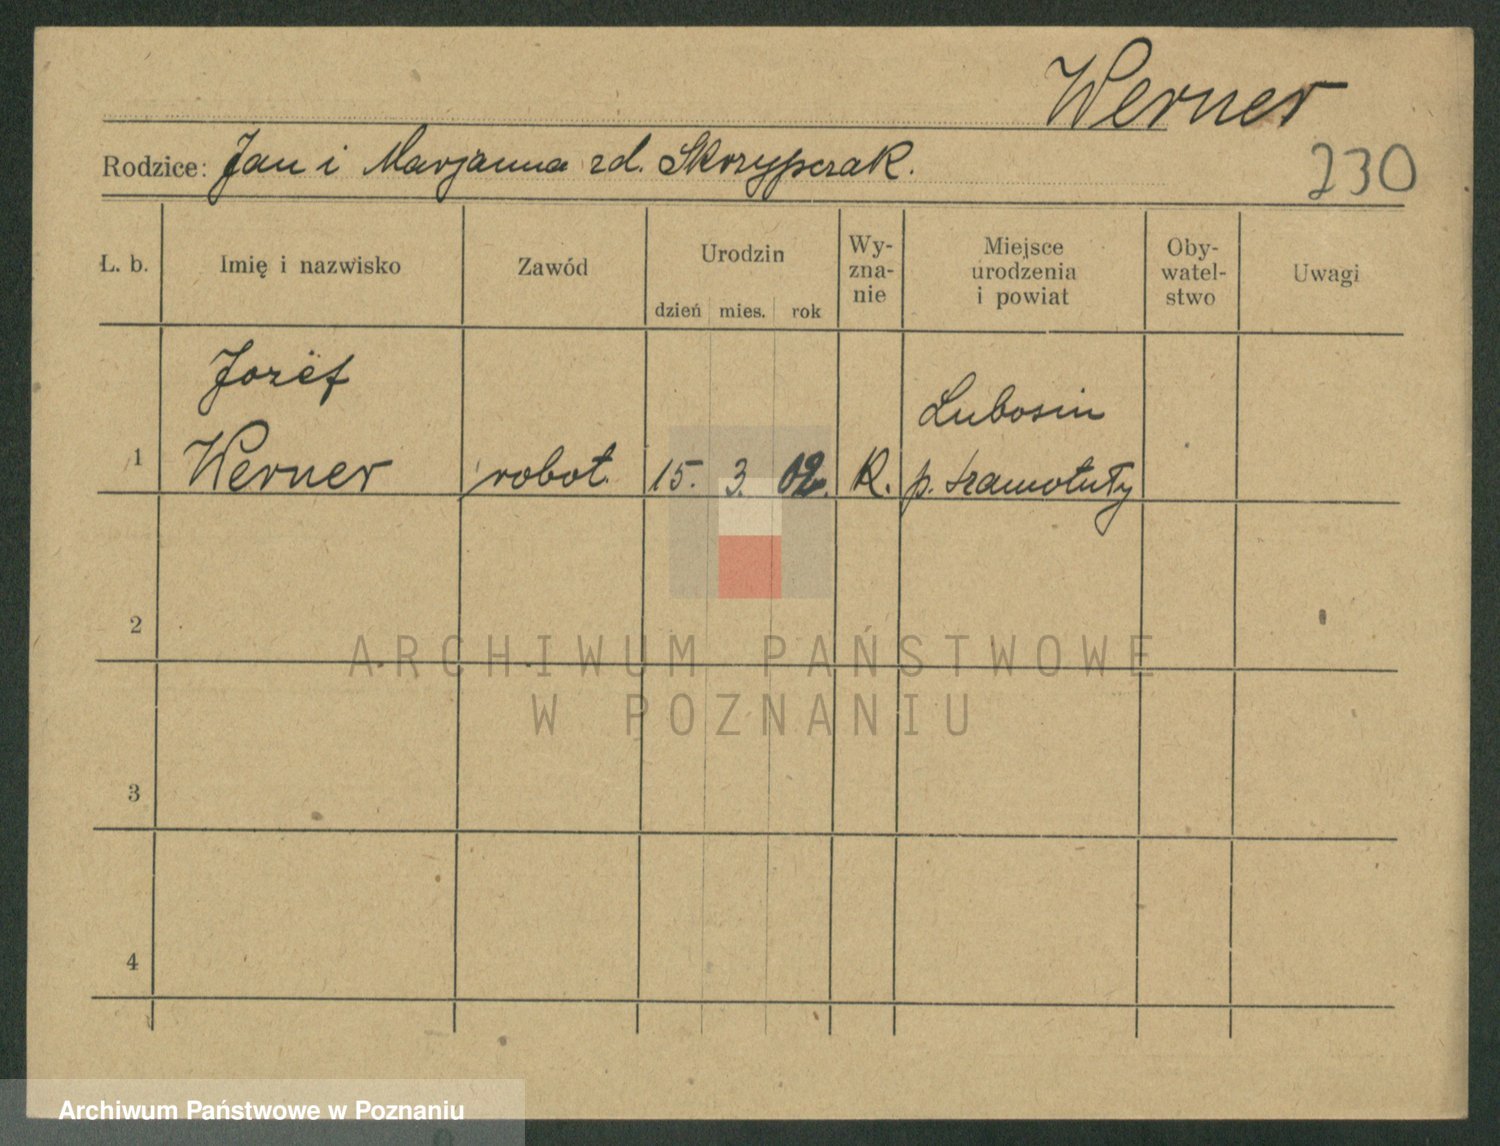 Werner
Rodzice: Jan i Marjanna zd. Skrzypczak.
230
L. b.
Imię i nazwisko
Zawód
Urodzin
dzień mies. rok
Wy-
zna-
nie
Miejsce
urodzenia
i powiat
Oby-
watel-
stwo
Uwagi
Jozef
Lubosin
1 Werner robot. 15. 3. 02. R. p. Szamotuły
2
ARCHIWUM PAŃSTWOWE
W POZNANIU
3
4
Archiwum Państwowe w Poznaniu